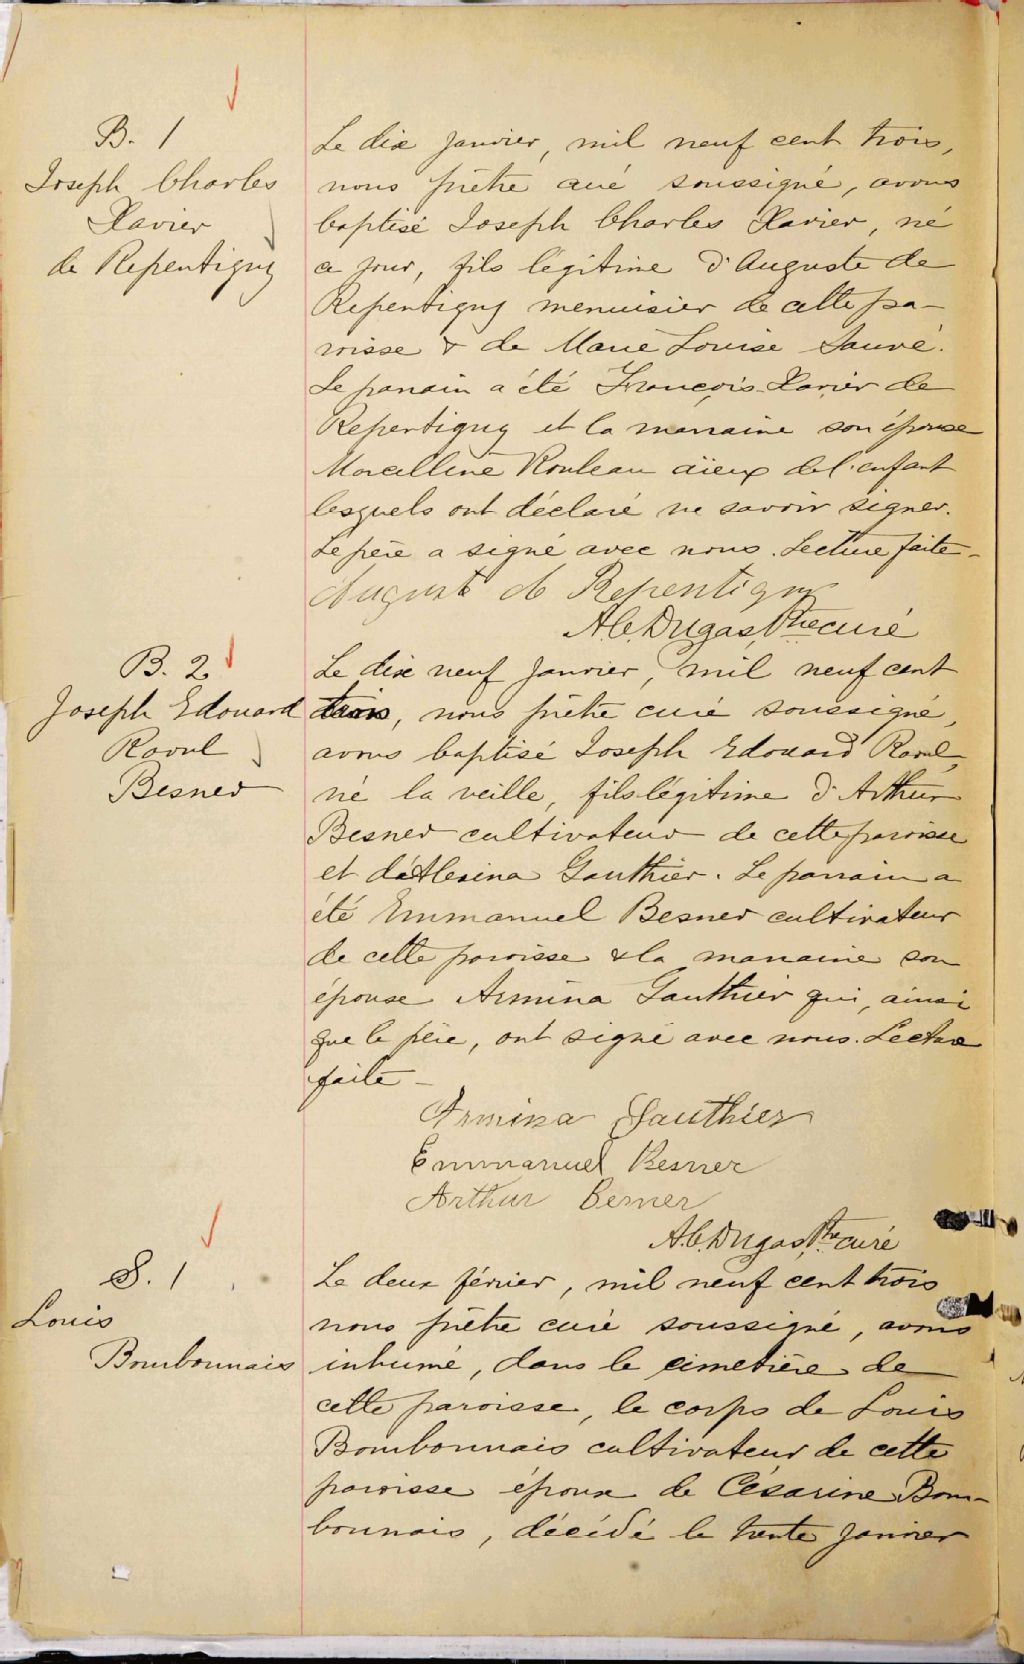 B. 1
Joseph Charles
Xavier
de Repentigny
Le dix janvier, mil neuf cent trois,
nous prêtre curé soussigné, avons
baptisé Joseph Charles Xavier, né
ce jour, fils légitime d'Auguste de
Repentigny menuisier de cette pa-
roisse & de Marie Louise Sauvé.
Le parrain a été François-Xavier de
Repentigny et la marraine son épouse
Marcelline Rouleau aïeux de l'enfant
lesquels ont déclaré ne savoir signer.
Le père a signé avec nous. Lecture faite-
August de Repentigny
A.C. Dugas, Ptre curé
B. 2
Joseph Edouard
Raoul
Besner
Le dix neuf janvier, mil neuf cent
trois, nous prêtre curé soussigné,
avons baptisé Joseph Edouard Raoul,
né la veille, fils légitime d'Arthur
Besner cultivateur de cette paroisse
et d'Alexina Gauthier. Le parrain a
été Emmanuel Besner cultivateur
de cette paroisse & la marraine son
épouse Armina Gauthier qui, ainsi
que le père, ont signé avec nous. Lecture
faite-
Armina Gauthier
Emmanuel Besner
Arthur Besner
A.C. Dugas, Ptre curé
S. 1
Louis
Bourbonnais
Le deux février, mil neuf cent trois
nous prêtre curé soussigné, avons
inhumé, dans le cimetière de
cette paroisse, le corps de Louis
Bourbonnais cultivateur de cette
paroisse époux de Césarine Bour-
bonnais, décédé le trente janvier